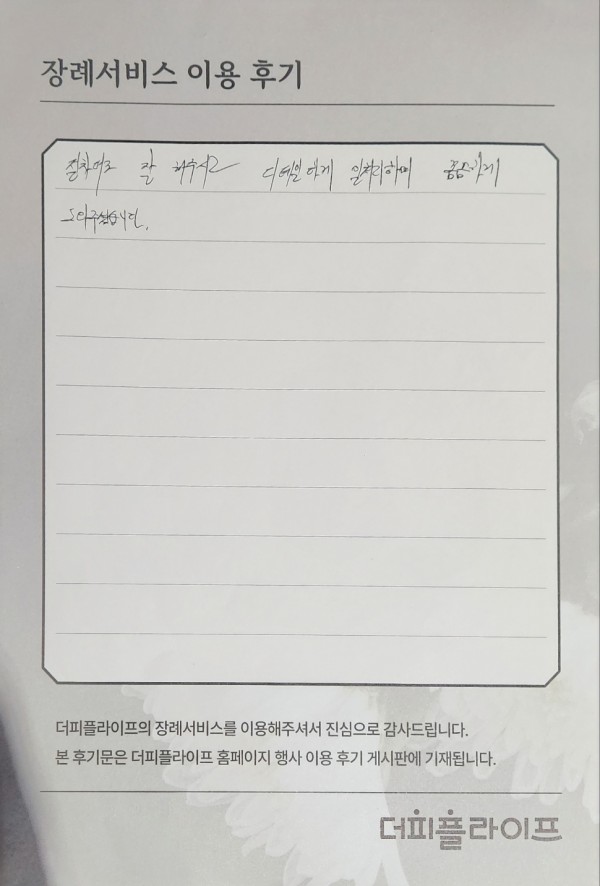 장례서비스 이용 후기
잘 해주시고 디테일하게 일처리하며 꼼꼼하게
도와주셨습니다.
더피플라이프의 장례서비스를 이용해주셔서 진심으로 감사드립니다.
본 후기문은 더피플라이프 홈페이지 행사 이용 후기 게시판에 기재됩니다.
더피플라이프